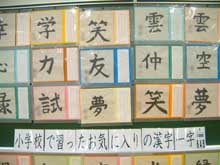 幸 学 笑 雲 雲
心 力 友 仲 空
緑 試 夢 笑 夢
小学校で習ったお気に入りの漢字一字